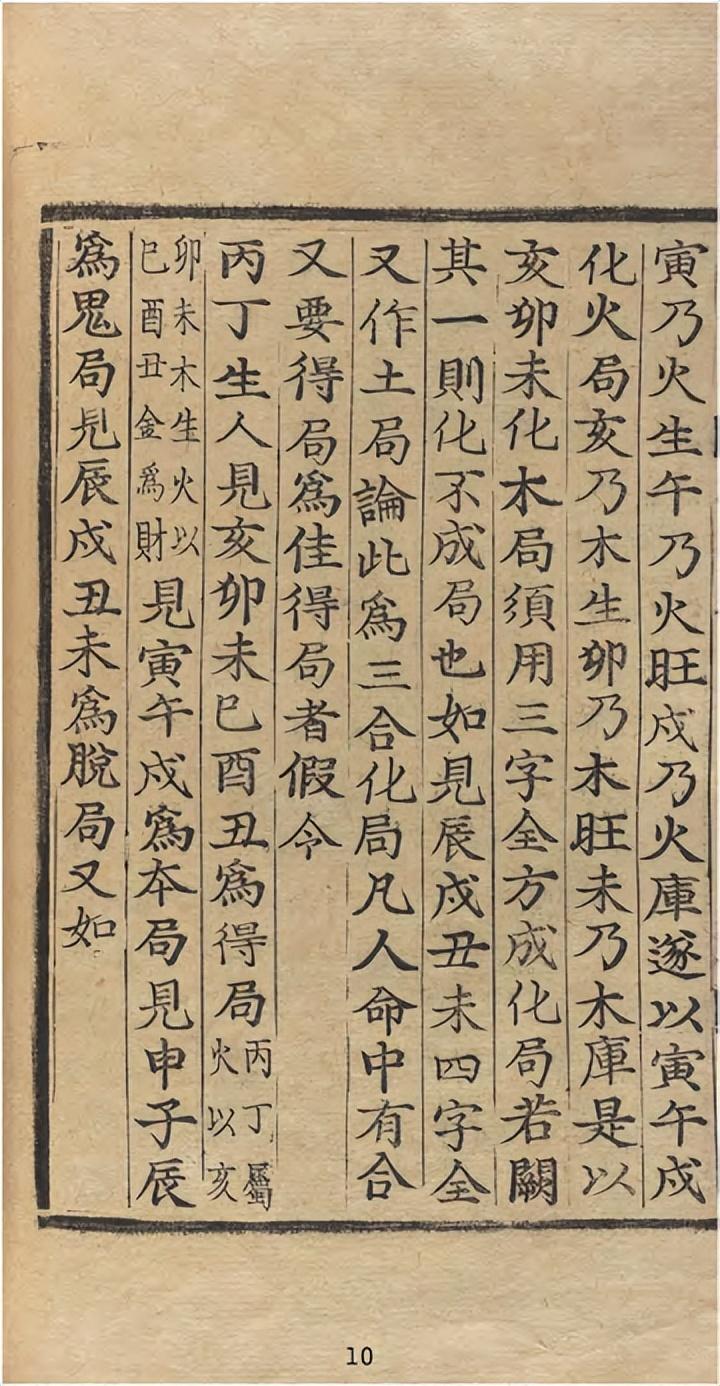 寅乃火生午乃火旺戍乃火庫遂以寅午戍
化火局亥乃木生卯乃木旺未乃木庫是以
亥卯未化木局須用三字全方成化局若闕
其一則化不成局也如見辰戍丑未四字全
又作土局論此爲三合化局凡人命中有合
又要得局爲佳得局者假令
丙丁生人見亥卯未巳酉丑爲得局丙丁屬火以亥
卯未木生火以巳酉丑金爲財見寅午戍爲本局見申子辰
爲鬼局見辰戍丑未爲脫局又如
10